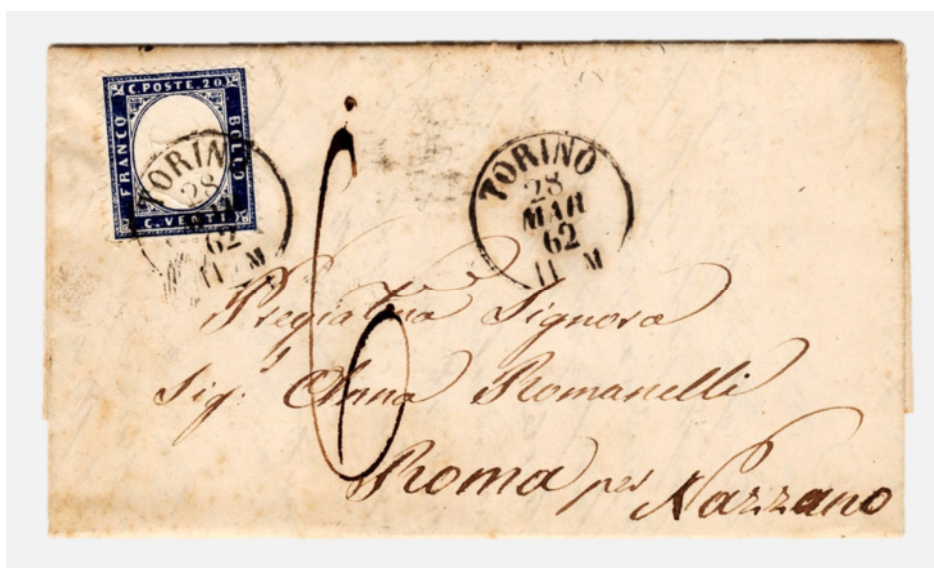 C. POSTE. 20
FRANCO
BOLLO
C. VENTI
TORINO
28
MAR
62
11 M
TORINO
28
MAR
62
11 M
6
Pregiatma Signora
Sig.ª Anna Romanelli
Roma per Nazzano